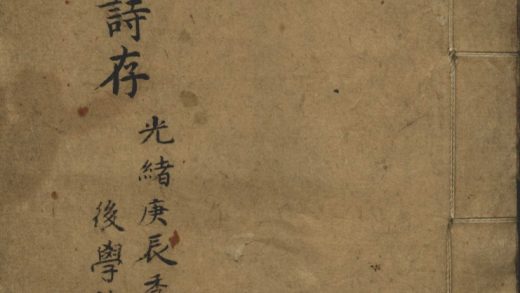 詩存
光緒庚辰
後學